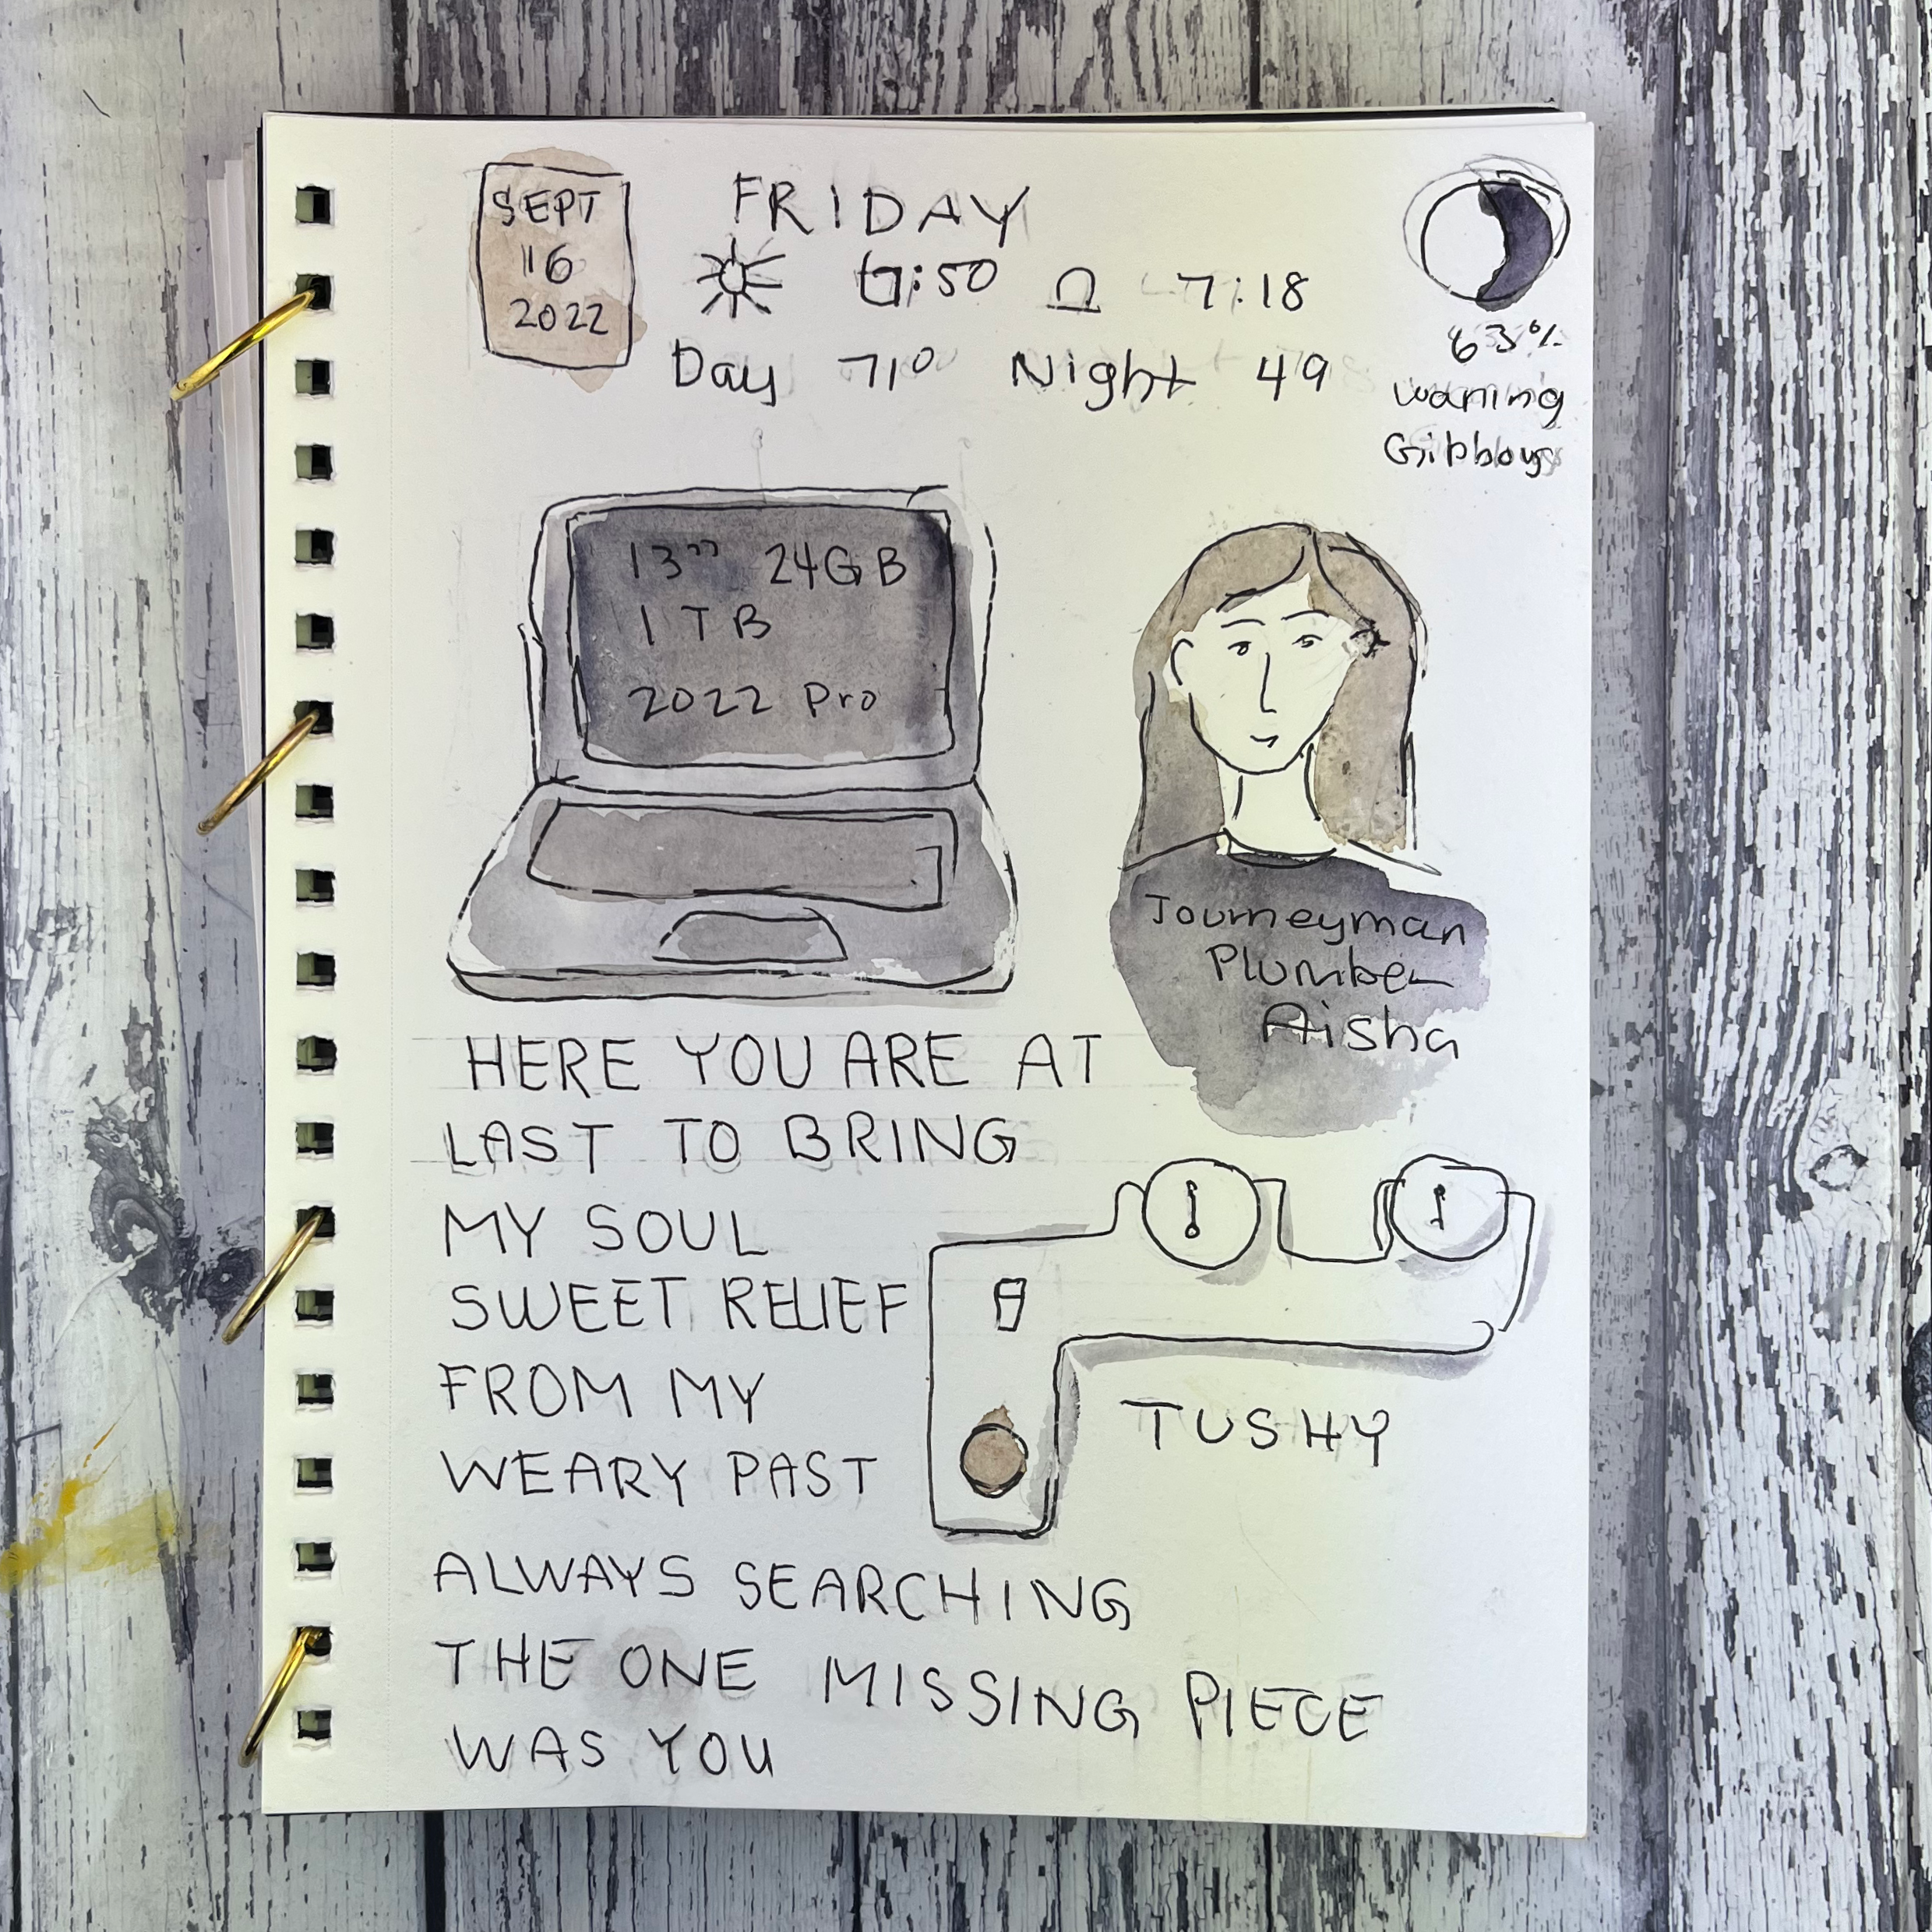 SEPT
16
2022
FRIDAY
7:50 7:18
Day 71° Night 49
63%
waning
Gibbous
13" 24GB
1 TB
2022 Pro
Journeyman
Plumber
Aisha
HERE YOU ARE AT
LAST TO BRING
MY SOUL
SWEET RELIEF
FROM MY
WEARY PAST
TUSHY
ALWAYS SEARCHING
THE ONE MISSING PIECE
WAS YOU